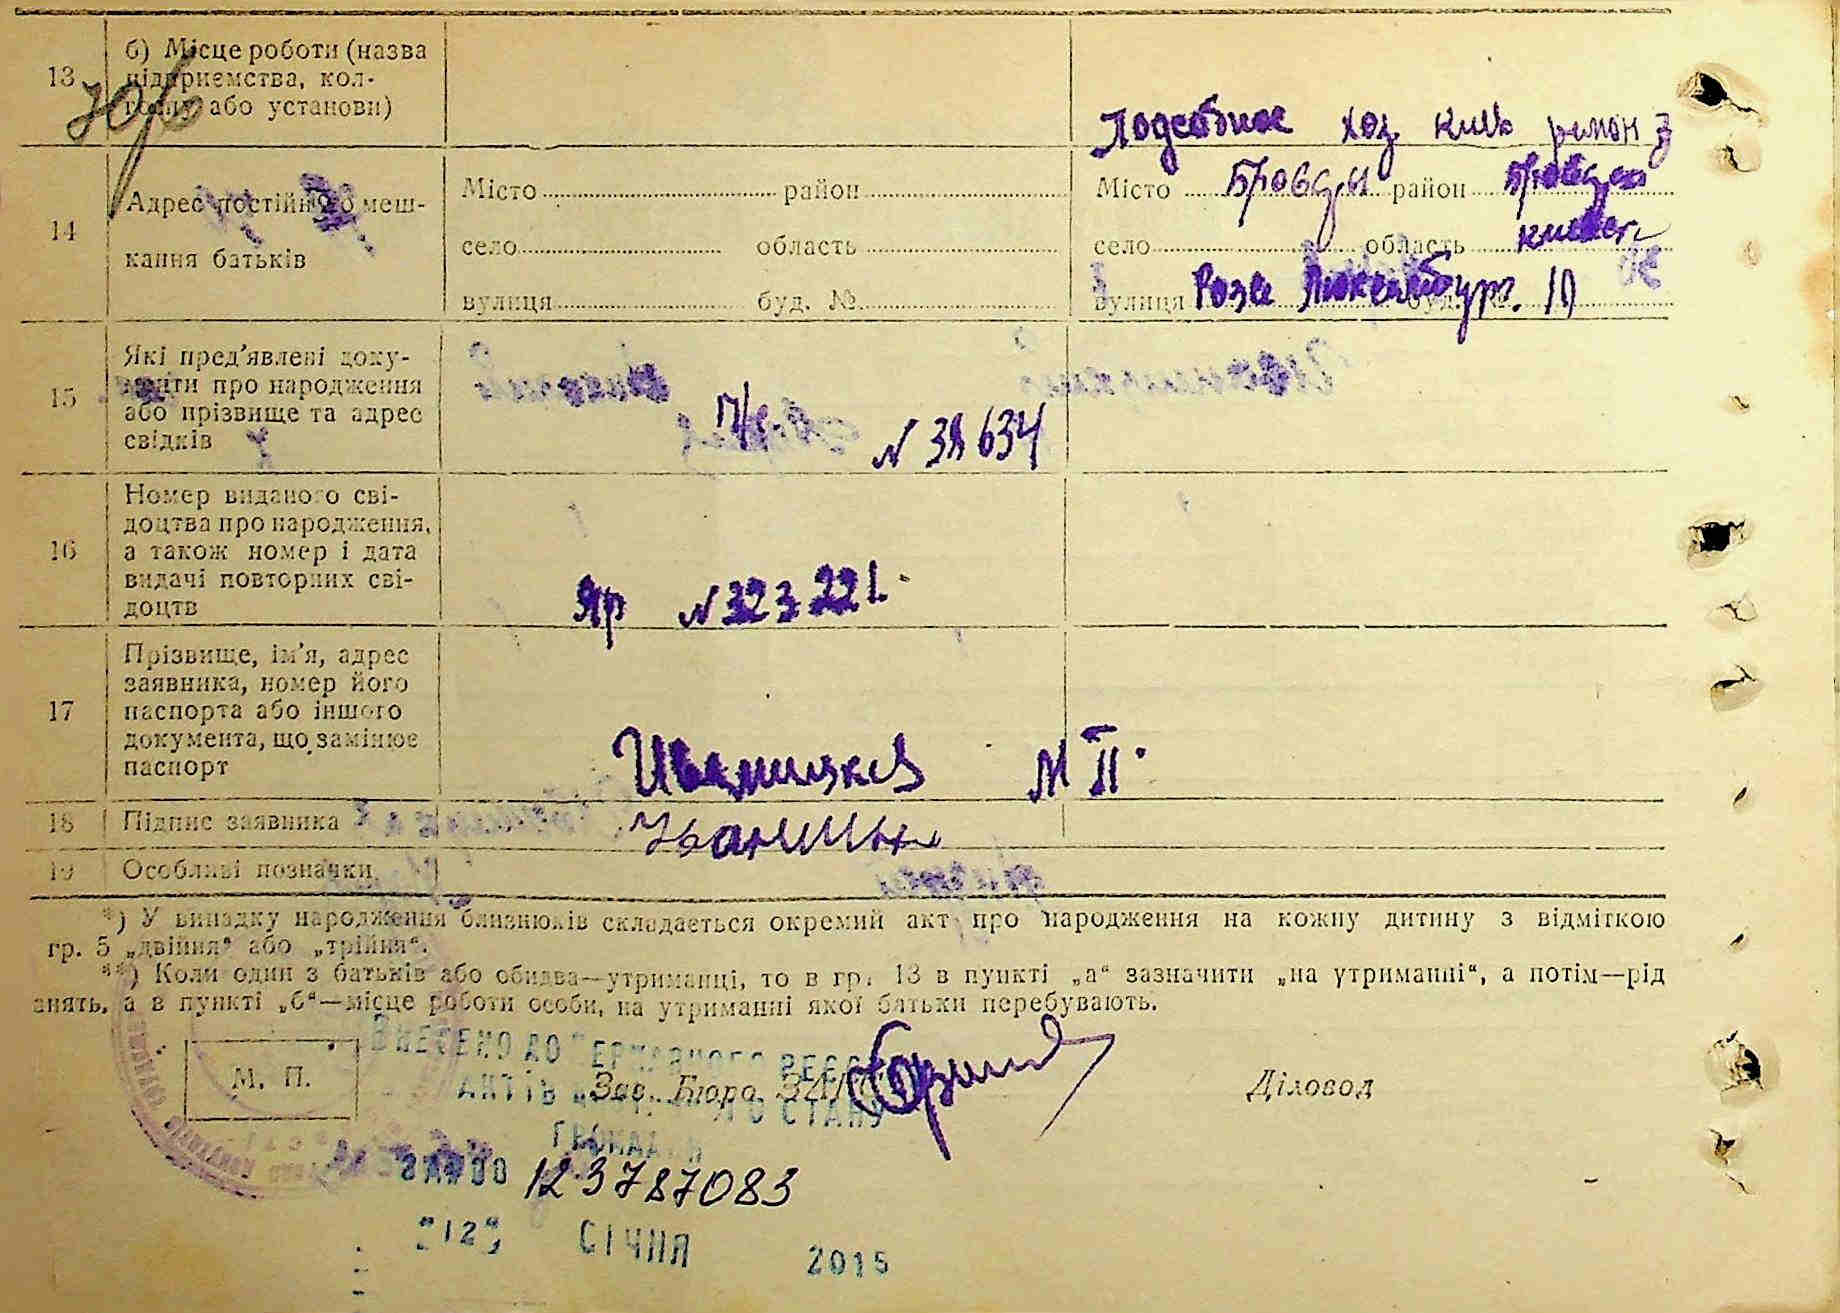 13
б) Місце роботи (назва
підприємства, кол-
госпу або установи)
Подсобное хоз. киев район
14
Адрес постійного меш-
кання батьків
Місто район
село область
вулиця буд. №
Місто Бровары район Бровар
село область киевск
вулиця Розы Люксембург. 10
15
Які пред'явлені доку-
менти про народження
або прізвище та адрес
свідків
N 38 634
16
Номер виданого сві-
доцтва про народження,
а також номер і дата
видачі повторних сві-
доцтв
Яр N 323221.
17
Прізвище, ім'я, адрес
заявника, номер його
паспорта або іншого
документа, що замінює
паспорт
Иваницкая М II.
18
Підпис заявника
19
Особливі позначки
*) У випадку народження близнюків складається окремий акт про народження на кожну дитину з відміткою
гр. 5 „двійня“ або „трійня“.
**) Коли один з батьків або обидва—утриманці, то в гр. 13 в пункті „а“ зазначити „на утриманні“, а потім—рід
анять, а в пункті „б“—місце роботи особи, на утриманні якої батьки перебувають.
М. П.
ВНЕСЕНО ДО ДЕРЖАВНОГО РЕЄСТРУ
АКТІВ ЦИВІЛЬНОГО СТАНУ
ГРОМАДЯН
Зав. Бюро ЗАГС
Діловод
ЗА № 00123787083
"12" СІЧНЯ 2015